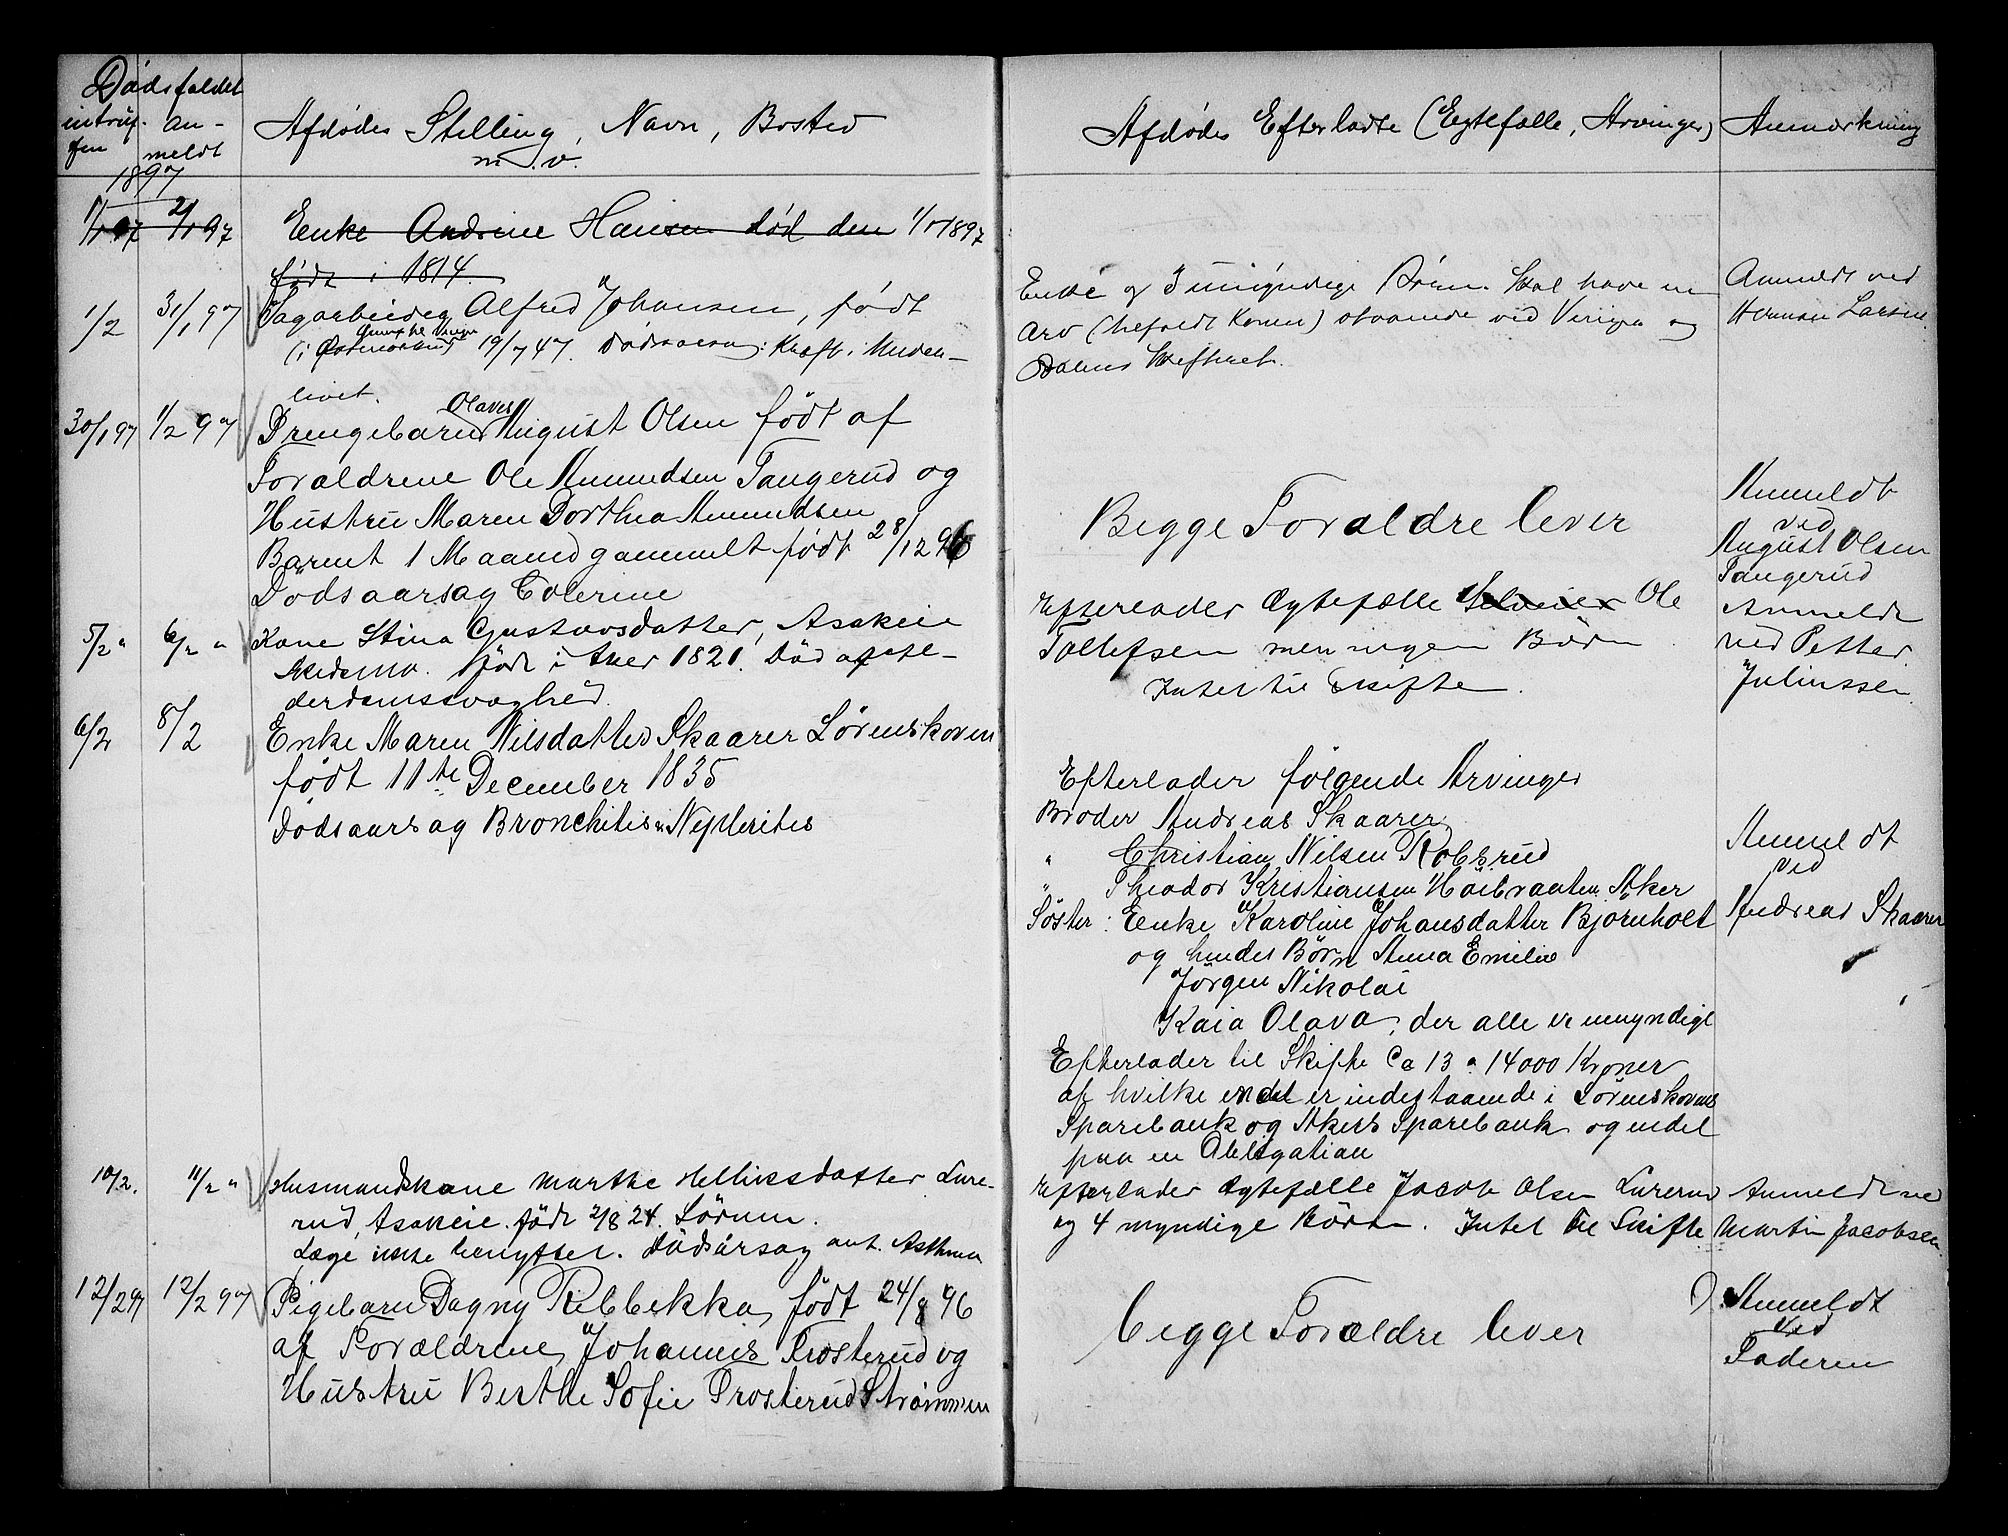 Dödsfaldet
intruf-
fen
an-
meldt
Afdødes Stilling, Navn, Bosted
m. v.
1897
1/1 97 2/1 97 Enke Andrine Hansen død den 1/1 1897
født i 1814.
1/2 31/1 97 Sagarbeider Alfred Johansen, født
19/7 47. Dødsaarsag: Kræft i Underlivet.
30/1 97 1/2 97 Drengebarn Olaves August Olsen født af
Forældrene Ole Amundsen Tangerud og
Hustru Maren Dorthea Amundsen
Barnet 1 Maaned gammelt født 28/12 96
Dödsaarsag Colerine
5/2 " 6/2 " Kone Stina Gustavsdatter, Asakeie
Skedsmo. Født i Aker 1821. Død af Al-
derdomssvaghed.
6/2 8/2 Enke Maren Nilsdatter Skaarer Lörenskoven
født 11te December 1835
Dødsaarsag Bronchitis & Nephrites
10/2. 11/2 " Husmandskone Marthe Hellixsdatter Lure-
rud, Asakeie. född 2/8 24. Sörum.
Læge ikke benyttet. Dødsårsag ant. Asthma
12/2 97 12/2 97 Pigebarn Dagny Rebbekka, født 24/8 96
af Forældrene Johannes Prosterud og
Hustru Berthe Sofie Prosterud Strömmen
Afdødes Efterladte (Egtefælle, Arvinger)
Enke og 3 umyndige Börn. Skal have en
Arv (tilfaldt Konen) staaende ved Vinger og
Odalens Skifteret.
Begge Forældre lever
Efterlader Ægtefælle Ole
Tollefsen men ingen Börn
Intet til Skifte.
Efterlader følgende Arvinger
Broder Andreas Skaarer
" Christian Nilsen Robsrud
Theodor Kristiansen Høibraaten Aker
Söster: Eenke Karoline Johansdatter Bjørnholt
og hendes Børn Anna Emilie
Jörgen Nikolai
Kaia Olava, der alle er umyndige
Efterlader til Skifte Ca 13 a 14000 Kroner
af hvilke en del er indestaaende i Lörenskovens
Sparebank og Akers Sparebank og en del
paa en Obligation
Efterlader Ægtefælle Jacob Olsen Lurerud
og 4 myndige Börn. Intet til Skifte
begge Forældre lever
Anmærkning
Anmeldt ved
Herman Larsen.
Anmeldt
ved
August Olsen
Tangerud
Anmeldt
ved Petter
Juliussen
Anmeldt
ved
Andreas Skaarer
Anmeldt ved
Martin Jacobsen.
Anmeldt
ved
Faderen